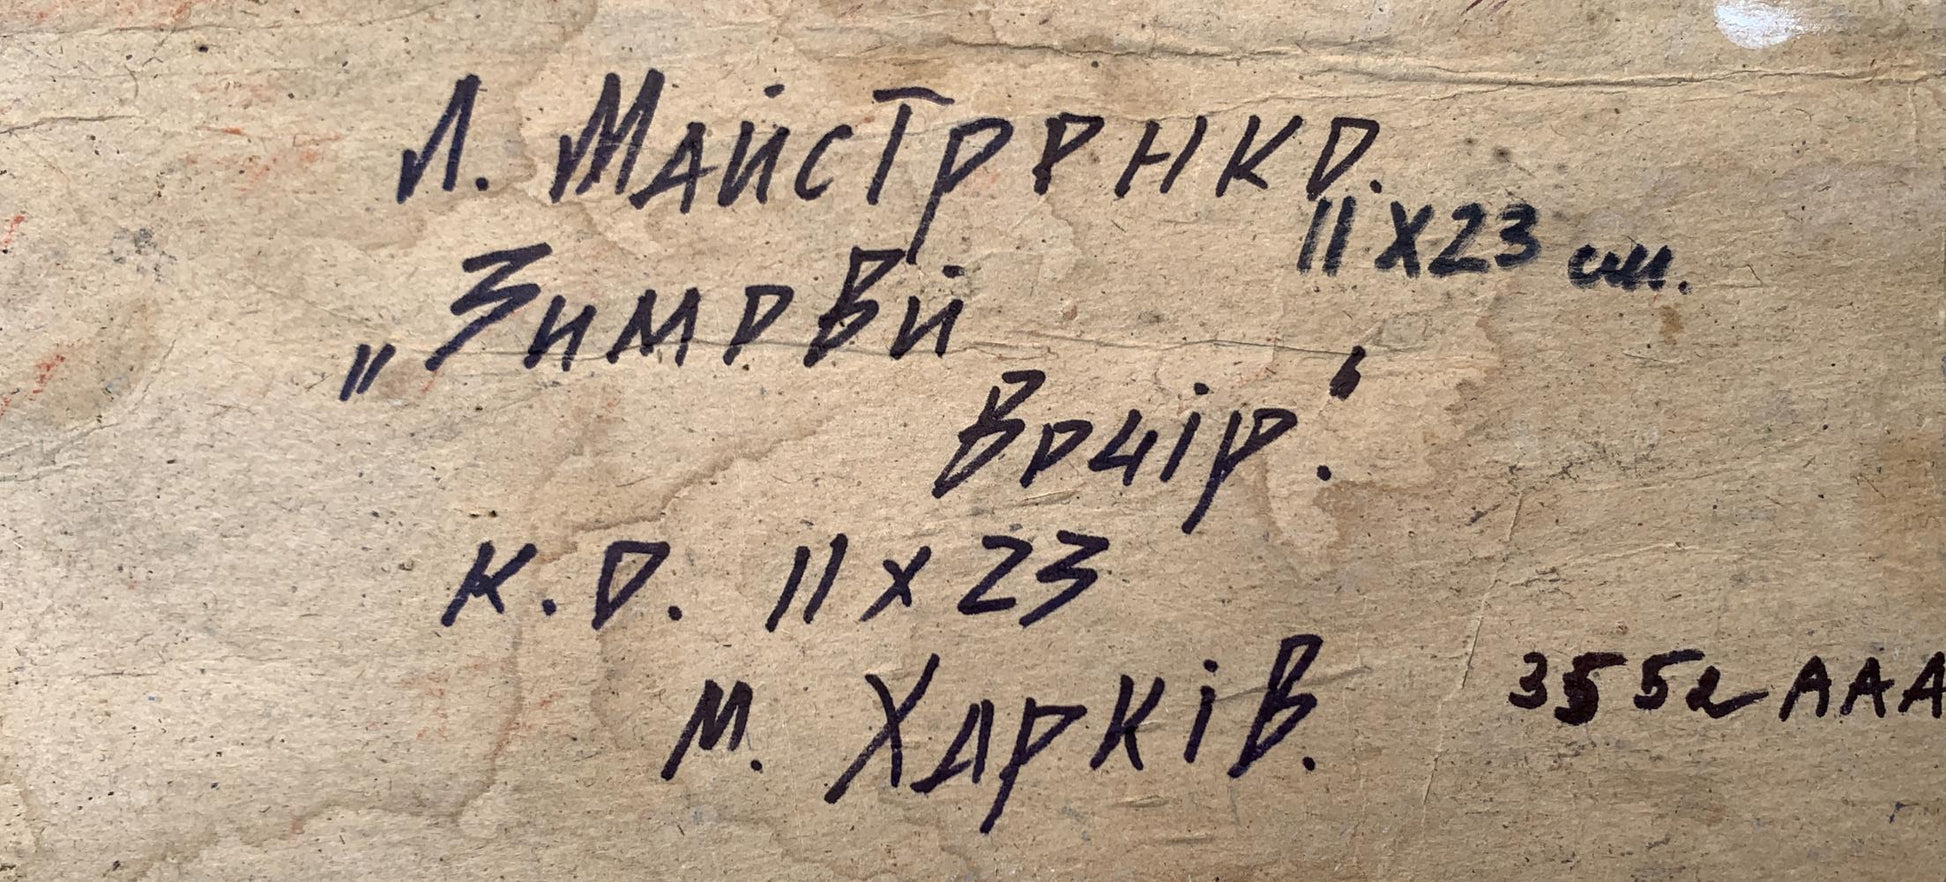 Л. Майстренко.
11х23 см.
„Зимовий
Вечір".
к.о. 11х23
м. Харків.
3552 ААА